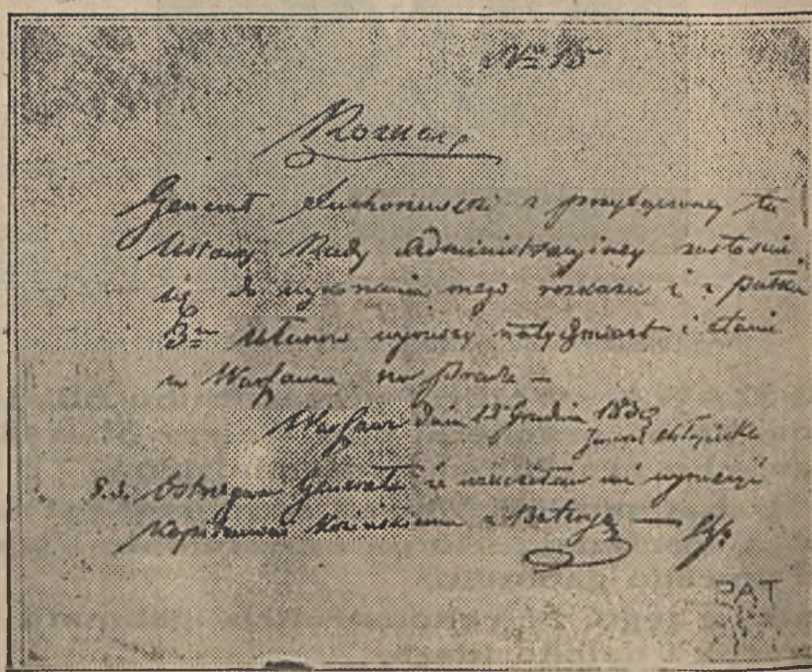 No 15
Rozkaz
Generał Suchorzewski z przyłączoney tu
Ustawy Rady Administracyiney zastosuie
się do wykonania mego rozkazu i z pułku
3m Ułanów wyruszy natychmiast i stanie
w Warszawie na Pradze —
Warszawa dnia 13 Grudnia 1830
Generał Chłopicki
P.S. Generała że
Kapitanowi z Bateryą —
PAT